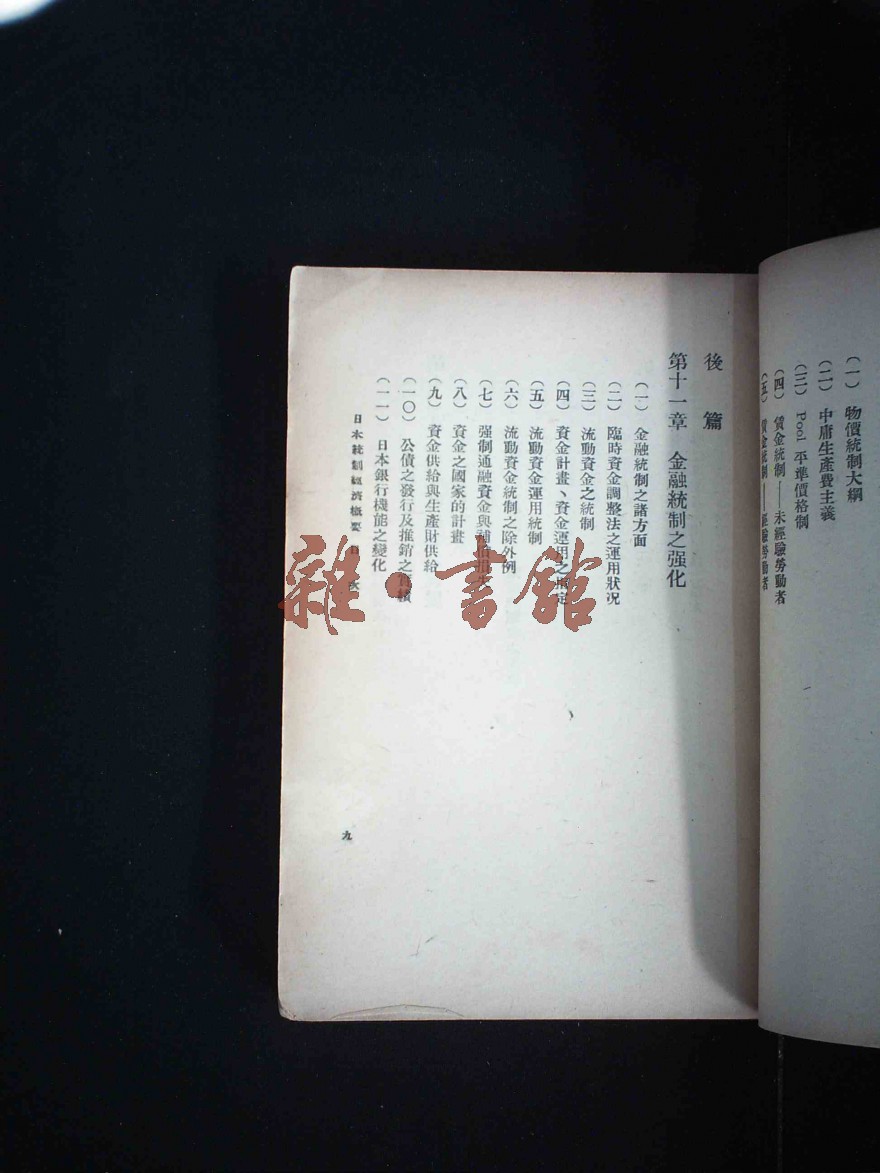 (一) 物價統制大綱
(二) 中庸生產費主義
(三) Pool 平準價格制
(四) 賃金統制——未經驗勞動者
(五) 賃金統制——經驗勞動者
後篇
第十一章 金融統制之强化
(一) 金融統制之諸方面
(二) 臨時資金調整法之運用狀况
(三) 流動資金之統制
(四) 資金計畫、資金運用之
(五) 流動資金運用統制
(六) 流動資金統制之除外例
(七) 强制通融資金與補償損失
(八) 資金之國家的計畫
(九) 資金供給與生產財供給
(一〇) 公債之發行及推銷之實績
(一一) 日本銀行機能之變化
日本統制經濟概要 目次
九
雜·書館